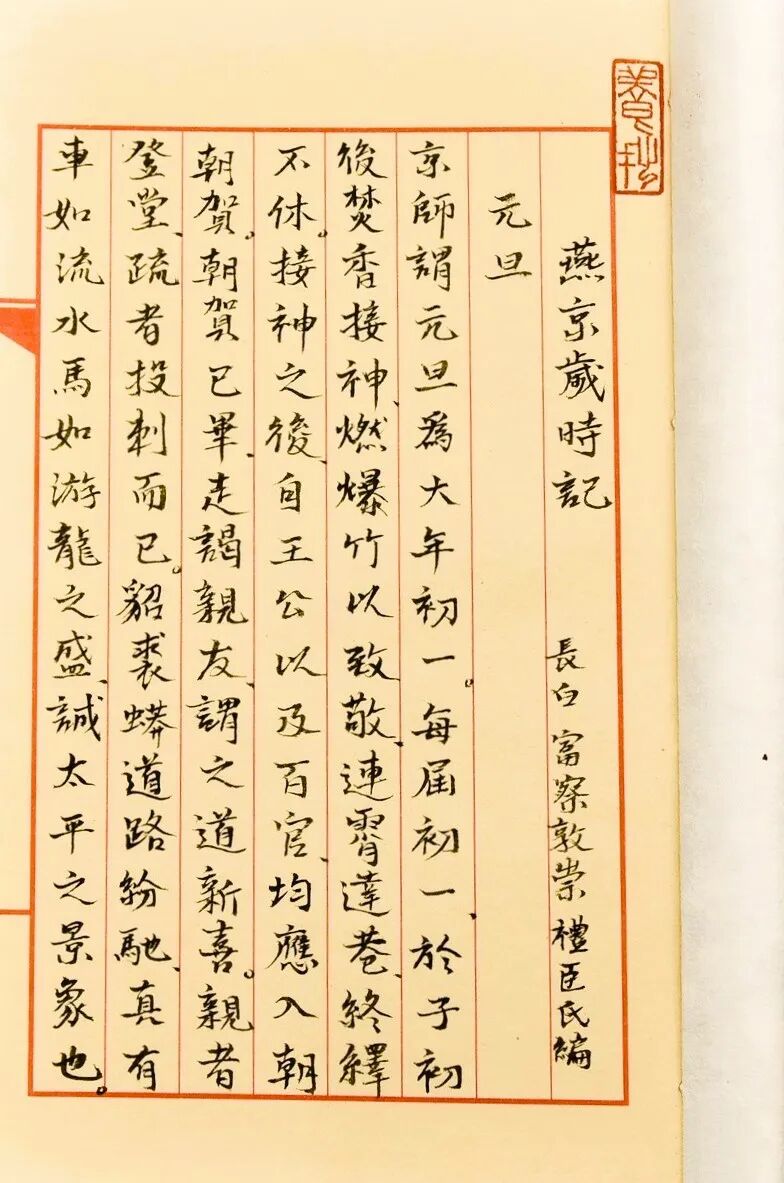 燕京歲時記 長白富察敦崇禮臣氏編
元旦
京師謂元旦爲大年初一。每届初一、於子初
後焚香接神、燃爆竹以致敬、連霄達巷、終繹
不休。接神之後、自王公以及百官、均應入朝
朝賀。朝賀已畢、走謁親友、謂之道新喜。親者
登堂、疏者投刺而已。貂裘蟒道路紛馳、真有
車如流水馬如游龍之盛、誠太平之景象也。